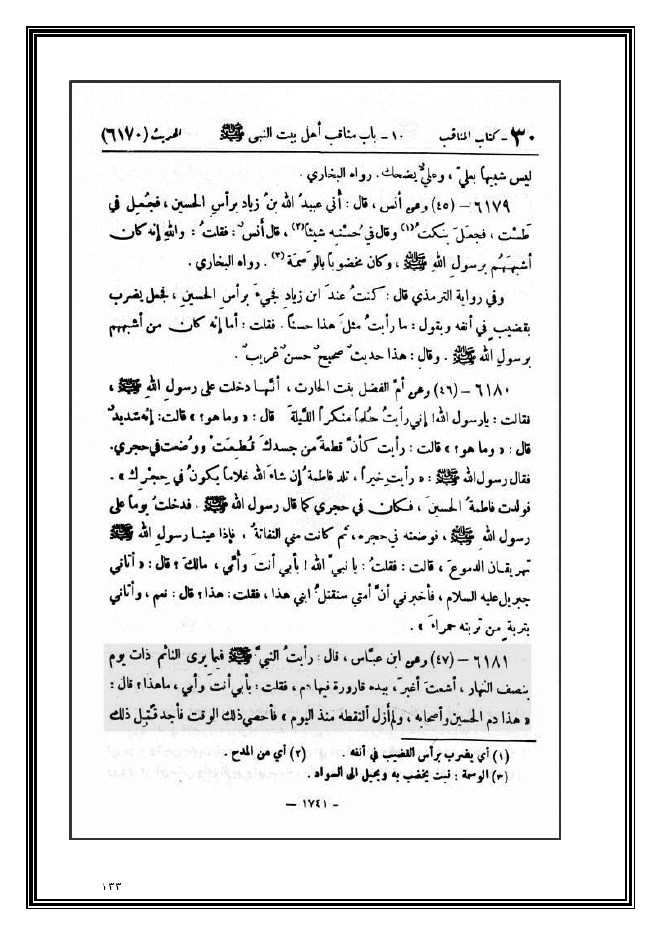 ٣٠ - كتاب المناقب ١٠ - باب مناقب أهل بيت النبي ﷺ الحديث (٦١٧٠)
ليس شبيهاً بعليّ ، وعليٌّ يضحك. رواه البخاري .
٦١٧٩ – (٤٥) وعن أنس ، قال : أُتي عبيدُ الله بنُ زياد برأسِ الحسين ، فجُعِل في
طَسْت ، فجعلَ ينكتُ(١) وقال في حُسْنِه شيئاً(٢) ، قال أنسٌ : فقلتُ : واللهِ إنه كان
أشبهَهُم برسولِ اللهِ ﷺ ، وكان مخضوباً بالوَسمَة (٣) . رواه البخاري .
وفي رواية الترمذي قال : كنتُ عندَ ابن زيادٍ فجيءَ برأسِ الحسينِ ، فجعل يضرب
بقضيبٍ في أنفه ويقول : ما رأيتُ مثلَ هذا حسناً . فقلت : أما إنه كان من أشبههم
برسولِ الله ﷺ . وقال : هذا حديثٌ صحيحٌ حسنٌ غريبٌ .
٦١٨٠ – (٤٦) وعن أمّ الفضل بنت الحارث ، أنَّها دخلت على رسولِ اللهِ ﷺ ،
فقالت : يارسول الله! إني رأيتُ حُلماً منكراً اللَّيلةَ قال : « وما هو؟ » قالت: إنه شديدٌ
قال : « وما هو؟ » قالت : رأيت كأنَّ قطعةً من جسدكَ قُطِعتْ ووُضعت في حجري.
فقال رسول الله ﷺ : « رأيتِ خيراً ، تلد فاطمةُ إن شاءَ اللهُ غلاماً يكونُ في حِجْرِك » .
فولدت فاطمةُ الحسينَ ، فكان في حجري كما قال رسول الله ﷺ . فدخلتُ يوماً على
رسول الله ﷺ ، فوضعته في حجره، ثم كانت مني التفاتةٌ ، فإذا عينا رسول الله ﷺ
تهريقان الدموعَ ، قالت : فقلتُ : يا نبيَّ الله ! بأبي أنتَ وأمّي ، مالكَ ؟ قال : « أتاني
جبريل عليه السلام ، فأخبرني أنَّ أمتي ستقتلُ ابني هذا ، فقلت : هذا؟ قال : نعم ، وأتاني
بتربةٍ من تربته حمراءَ » .
٦١٨١ – (٤٧) وعن ابن عبَّاس ، قال : رأيتُ النبيَّ ﷺ فيما يرى النائم ذات يوم
بنصف النهار ، أشعثَ أغبرَ ، بيده قارورة فيها دم ، فقلت : بأبي أنتَ وأمي ، ماهذا؟ قال :
« هذا دم الحسين وأصحابه ، ولم أزل ألتقطه منذ اليوم » فأحصي ذلك الوقت فأجد قُتِل ذلك
(١) أي يضرب برأس القضيب في أنفه . (٢) أي من المدح .
(٣) الوسمة : نبت يختضب به ويميل الى السواد .
– ١٧٤١ –
١٣٣